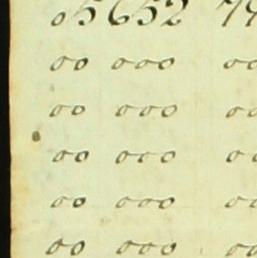 05652 79
00 000 00
00 000 00
00 000 00
00 000 00
00 000 00